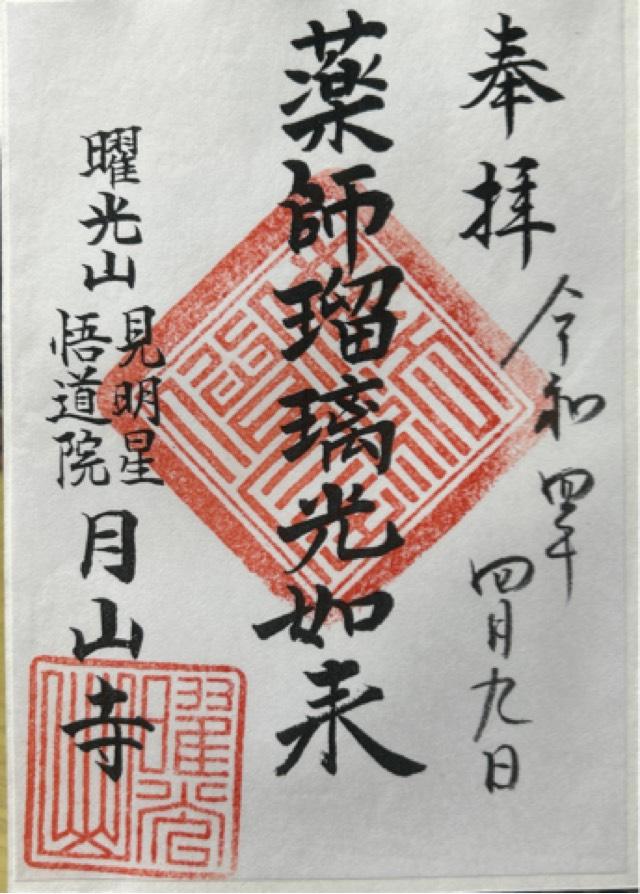 奉拝
令和四年
四月九日
薬師瑠璃光如来
曜光山
見明星
悟道院
月山寺
曜光山